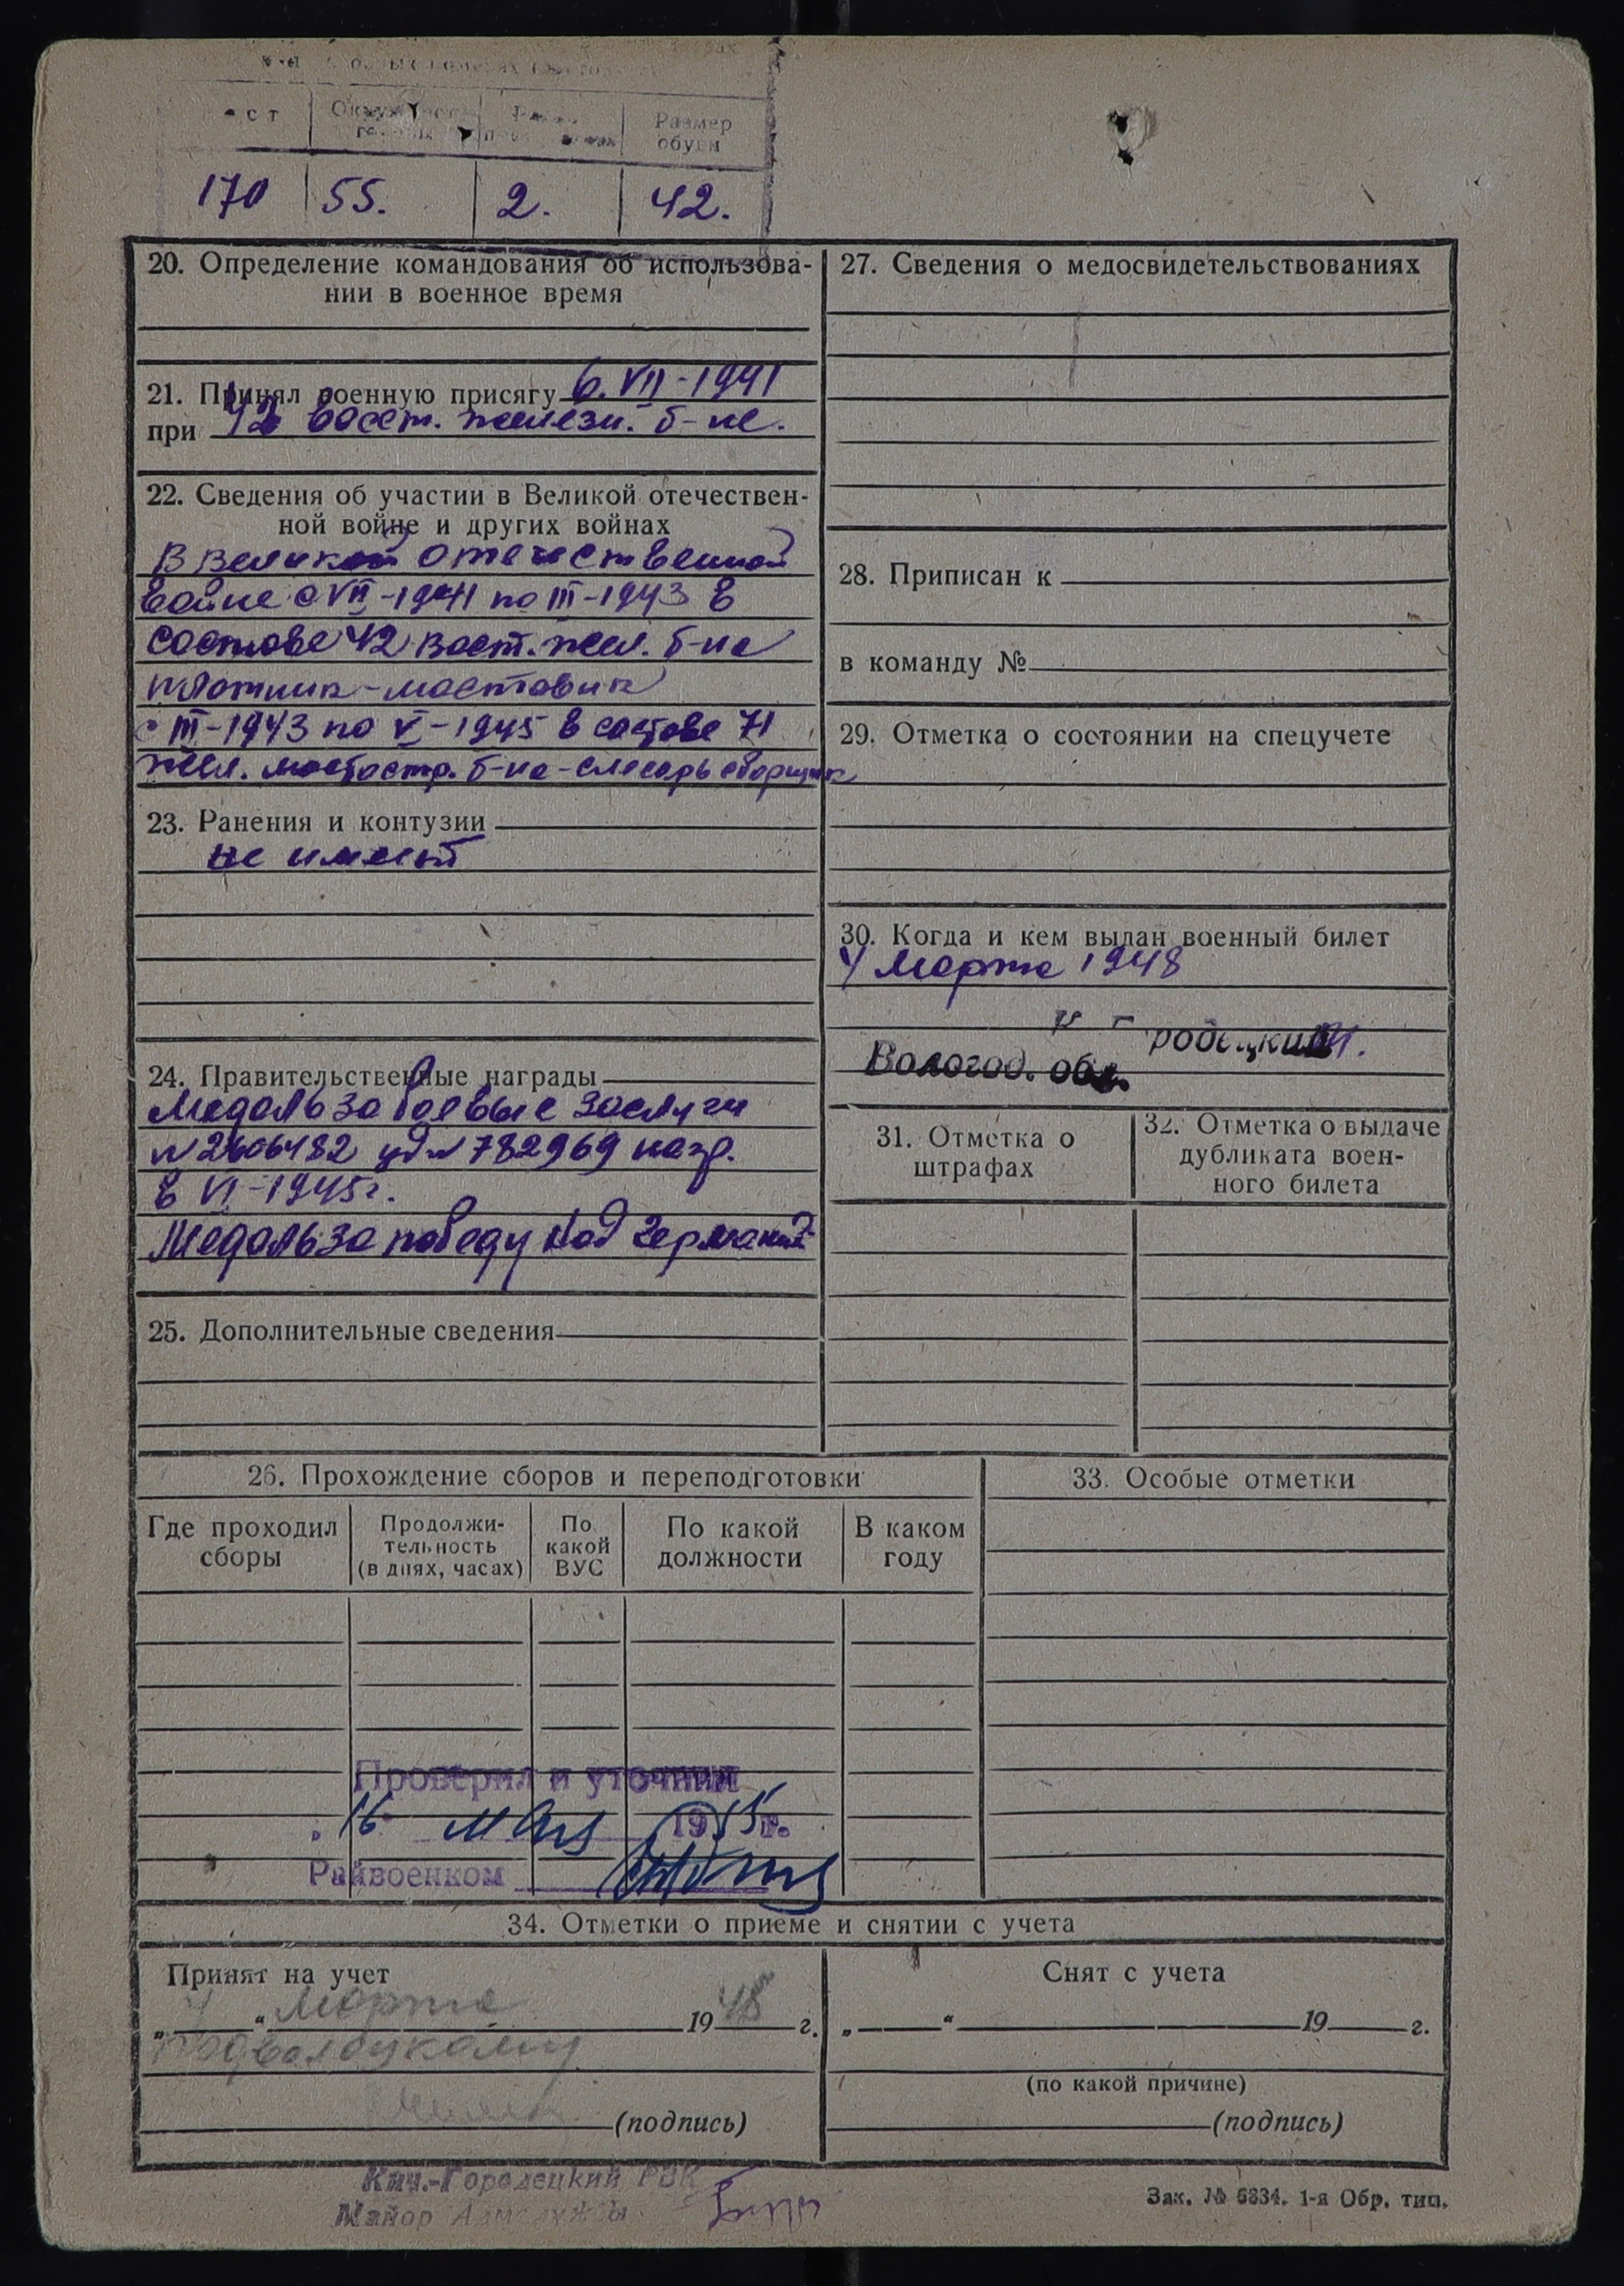 Размер
обуви
170 55. 2. 42.
20. Определение командования об использова-
нии в военное время
21. Принял военную присягу 6. VII-1941
при 42 восст. железн. б-не.
22. Сведения об участии в Великой отечествен-
ной войне и других войнах
В Великой отечественной
войне с VII-1941 по III-1943 в
составе 42 вост. жел. б-на
плотник-мостовик
с III-1943 по V-1945 в составе 71
жел. мостостр. б-на-слесарь сборщик
23. Ранения и контузии
не имеет
24. Правительственные награды
Медаль за боевые заслуги
N 2606482 уд N 782969 нагр.
в VI-1945г.
Медаль за победу над Германий
25. Дополнительные сведения
27. Сведения о медосвидетельствованиях
28. Приписан к
в команду №
29. Отметка о состоянии на спецучете
30. Когда и кем выдан военный билет
4 Марта 1948
родецким.
Вологод. обл.
31. Отметка о
штрафах
32. Отметка о выдаче
дубликата воен-
ного билета
26. Прохождение сборов и переподготовки
Где проходил
сборы
Продолжи-
тельность
(в днях, часах)
По
какой
ВУС
По какой
должности
В каком
году
Проверил и уточнил
16 мая 1955 г.
Райвоенком
33. Особые отметки
34. Отметки о приеме и снятии с учета
Принят на учет
„ 4 “ Марта 1948 г.
(подпись)
Снят с учета
„ “ 19 г.
(по какой причине)
(подпись)
Кич.-Городецкий РВК
Майор
Зак. № 6334. 1-я Обр. тип.